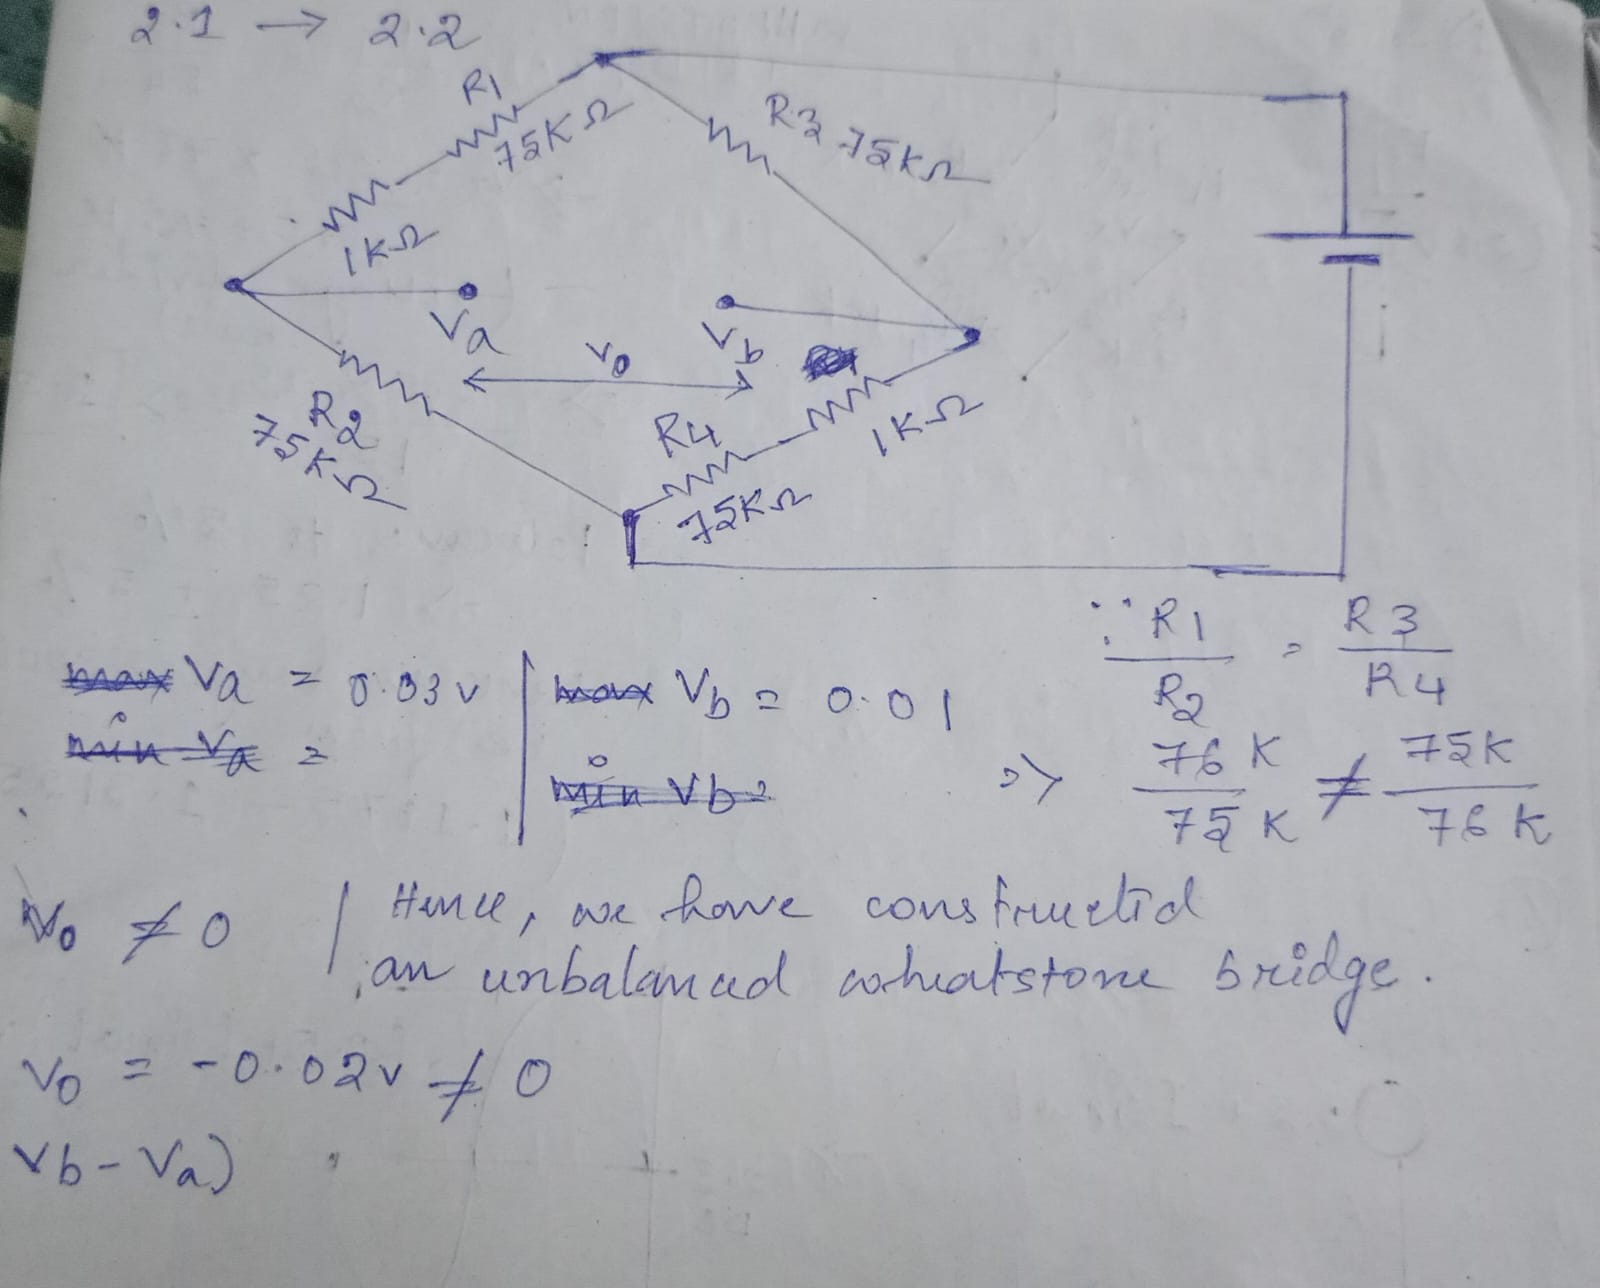 2.1 → 2.2
R1
75KΩ
1KΩ
R3 75KΩ
Va
Vb
Vo
R2
75KΩ
R4
75KΩ
1KΩ
max Va = 0.03v | max Vb = 0.01
min Va =
min Vb =
∵ R1/R2 = R3/R4
=> 76K/75K ≠ 75K/76K
Vo ≠ 0 | Hence, we have constructed
an unbalanced wheatstone bridge.
Vo = -0.02v ≠ 0
Vb - Va)